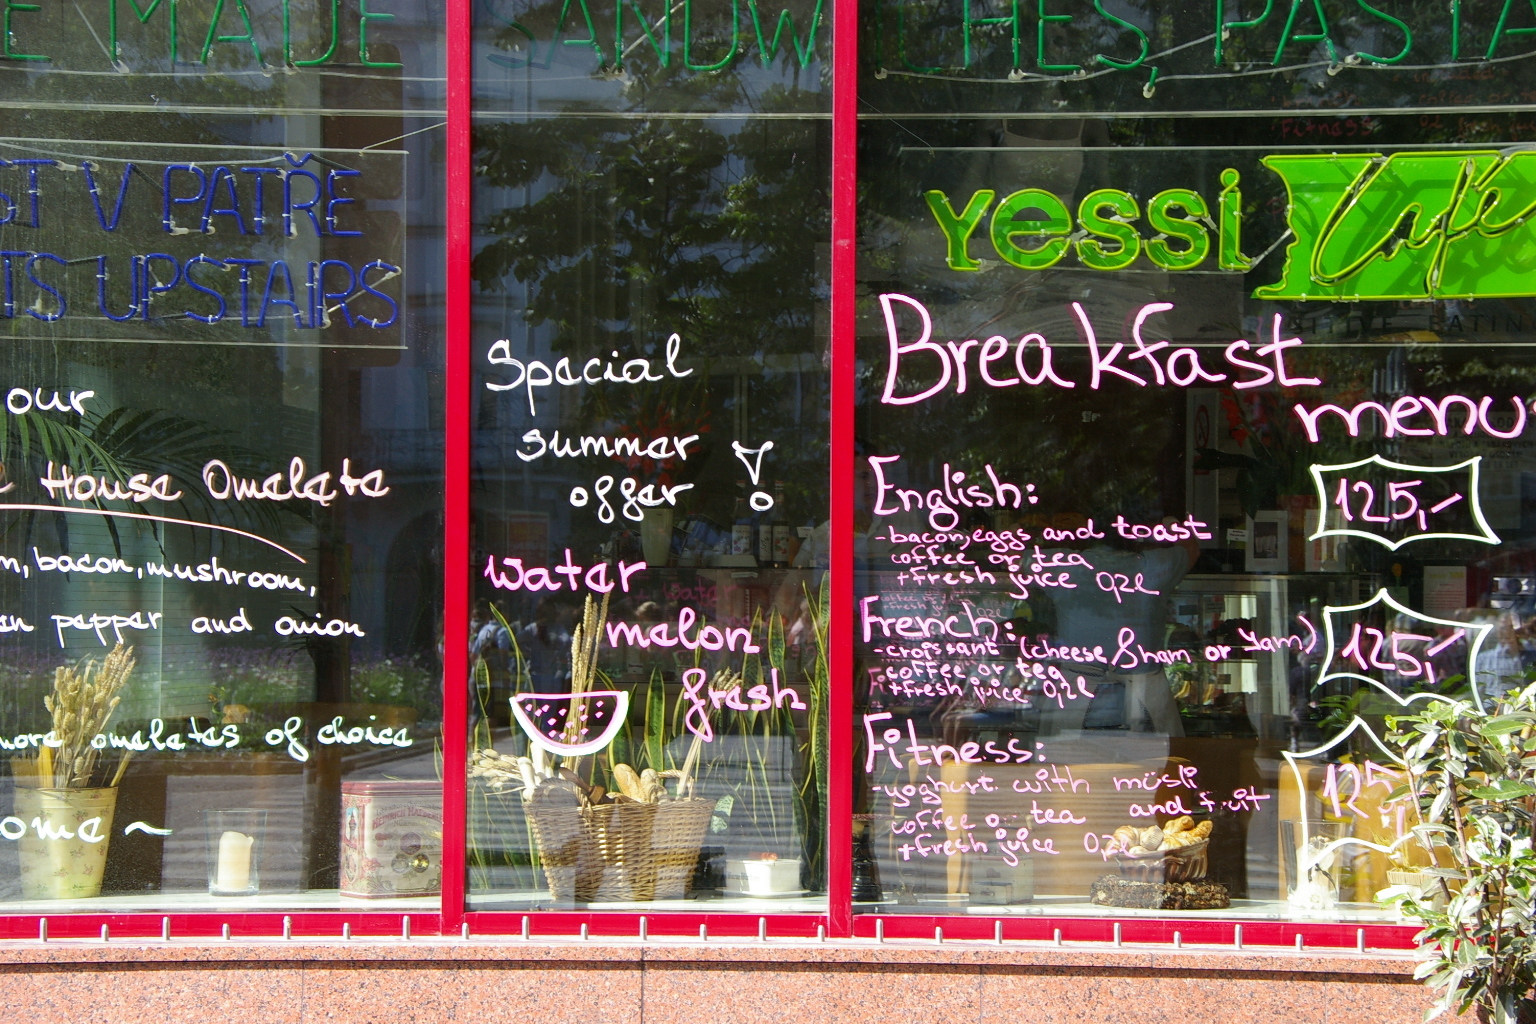 E MADE SANDWICHES, PASTA
V PATŘE
UPSTAIRS
our
House Omelete
bacon, mushroom,
pepper and onion
more omeletes of choice
Special
summer
offer!
water
melon
fresh
yessi Café
Breakfast
menu
English:
125,-
-bacon, eggs and toast
coffee or tea
+fresh juice 0,2l
French:
125,-
-croissant (cheese & ham or Jam)
coffee or tea
+fresh juice 0,2l
Fitness:
-yoghurt with müsli
and fruit
coffee or tea
+fresh juice 0,2l